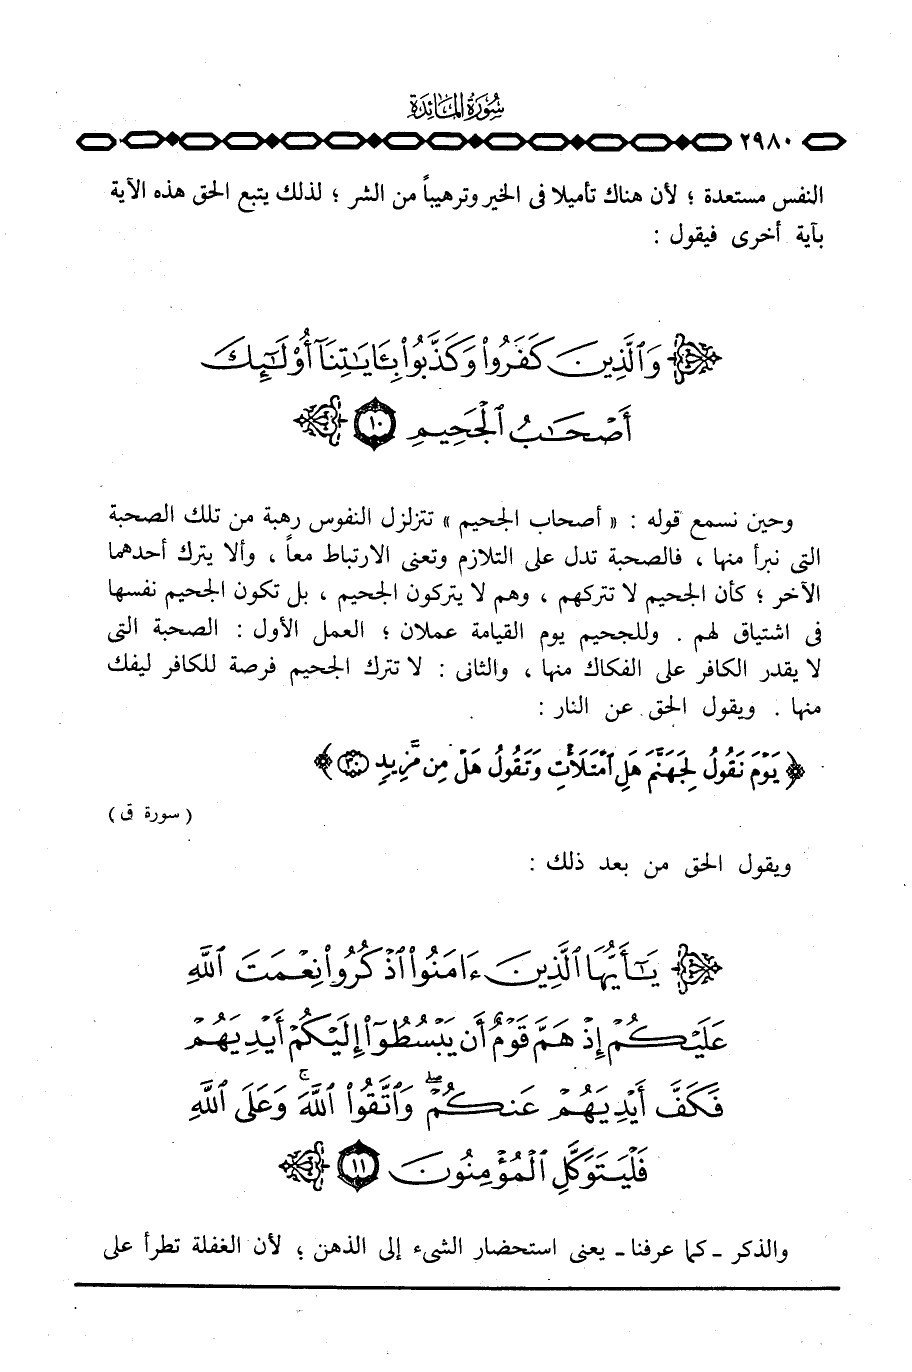 سُورَةُ المَائِدَةِ
٢٩٨٠
النفس مستعدة ؛ لأن هناك تأميلا فى الخير وترهيباً من الشر ؛ لذلك يتبع الحق هذه الآية
بآية أخرى فيقول :
وَٱلَّذِينَ كَفَرُواْ وَكَذَّبُواْ بِـَٔايَـٰتِنَآ أُوْلَـٰٓئِكَ
أَصْحَـٰبُ ٱلْجَحِيمِ ١٠
وحين نسمع قوله : « أصحاب الجحيم » تتزلزل النفوس رهبة من تلك الصحبة
التى نبرأ منها ، فالصحبة تدل على التلازم وتعنى الارتباط معاً ، وألا يترك أحدهما
الآخر ؛ كأن الجحيم لا تتركهم ، وهم لا يتركون الجحيم ، بل تكون الجحيم نفسها
فى اشتياق لهم . وللجحيم يوم القيامة عملان ؛ العمل الأول : الصحبة التى
لا يقدر الكافر على الفكاك منها ، والثانى : لا تترك الجحيم فرصة للكافر ليفك
منها . ويقول الحق عن النار :
﴿ يَوْمَ نَقُولُ لِجَهَنَّمَ هَلِ ٱمْتَلَأْتِ وَتَقُولُ هَلْ مِن مَّزِيدٍ ٣٠ ﴾
( سورة ق )
ويقول الحق من بعد ذلك :
يَـٰٓأَيُّهَا ٱلَّذِينَ ءَامَنُواْ ٱذْكُرُواْ نِعْمَتَ ٱللَّهِ
عَلَيْكُمْ إِذْ هَمَّ قَوْمٌ أَن يَبْسُطُوٓاْ إِلَيْكُمْ أَيْدِيَهُمْ
فَكَفَّ أَيْدِيَهُمْ عَنكُمْ ۖ وَٱتَّقُواْ ٱللَّهَ ۚ وَعَلَى ٱللَّهِ
فَلْيَتَوَكَّلِ ٱلْمُؤْمِنُونَ ١١
والذكر ـ كما عرفنا ـ يعنى استحضار الشىء إلى الذهن ؛ لأن الغفلة تطرأ على